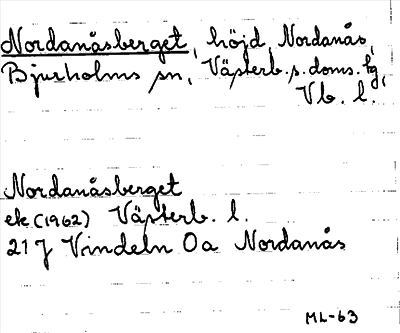 Nordanåsberget, höjd, Nordanås,
Bjurholms sn, Västerb. s. doms. tg,
Vb. l.
Nordanåsberget
ek (1962) Västerb. l.
21 J Vindeln 0a Nordanås
ML-63